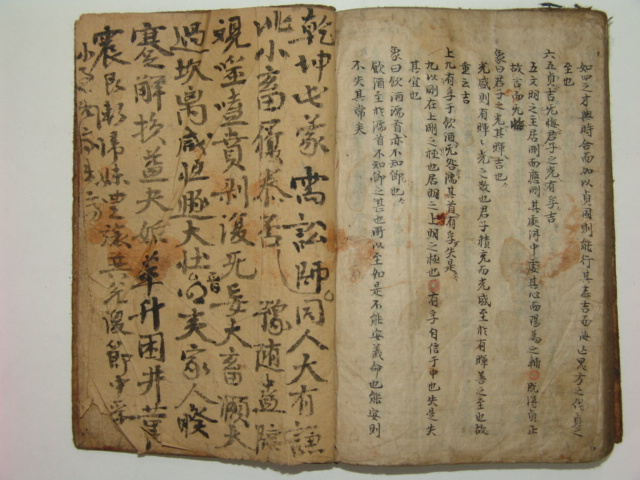 如四之才與時合而加以貞固則能行其志吉而悔亡鬼方之伐貞之
至也
六五貞吉无悔君子之光有孚吉
五文明之主居剛而應剛其處得中虛其心而陽爲之輔 既得貞正
故吉而无悔
象曰君子之光其暉吉也
光盛則有暉暉光之散也君子積充而光盛至於有暉善之至也故
重云吉
上九有孚于飮酒无咎濡其首有孚失是
九以剛在上剛之極也居明之上明之極也 有孚自信于中也失是失
其宜也
象曰飮酒濡首亦不知節也
飮酒至於濡首不知節之甚也所以至如是不能安義命也能安則
不失其常矣
乾坤屯蒙需訟師同人大有謙
比小畜履泰否 豫随蠱臨
觀噬嗑賁剥復无妄大畜頤大
過坎离咸恒遯大壮晉明夷家人睽
蹇解損益夬姤萃升困井革
震艮漸歸妹豊旅巽兌渙節中孚
小過